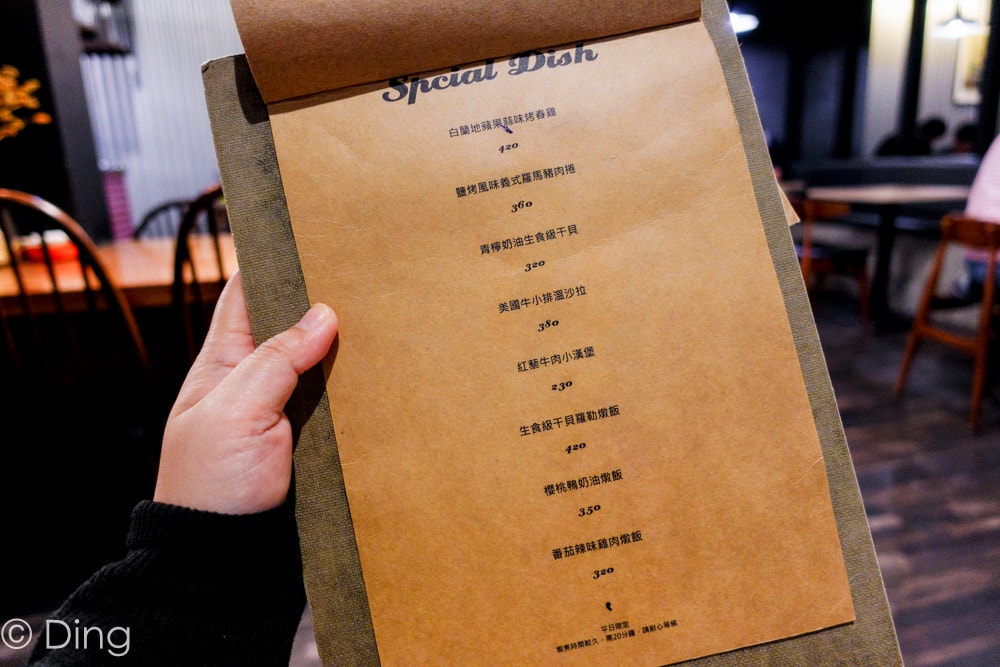 Spcial Dish
白蘭地蘋果蒜味烤春雞
420
鹽烤風味義式羅馬豬肉捲
360
青檸奶油生食級干貝
320
美國牛小排溫沙拉
380
紅藜牛肉小漢堡
230
生食級干貝羅勒燉飯
420
櫻桃鴨奶油燉飯
350
番茄辣味雞肉燉飯
320
平日限定
燉煮時間較久，需20分鐘，請耐心等候
© Ding